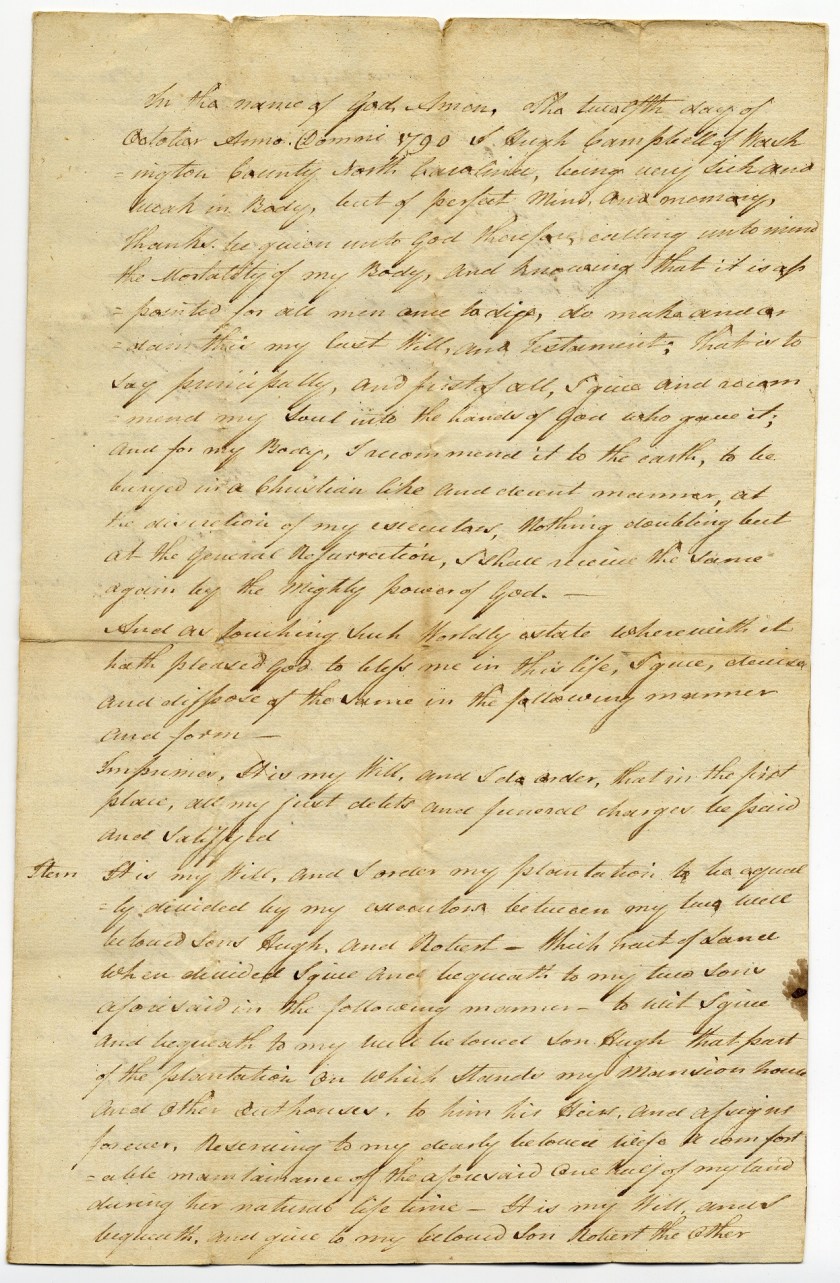 In the name of God, Amen, The twelfth day of
October Anno. Domni 1790 I Hugh Campbell of Wash
=ington County North Carolina, being very sick and
weak in Body, but of perfect Mind, and memory,
thanks be given unto God therefor, calling unto mind
the Mortality of my Body, and knowing that it is ap
=pointed for all men once to dye, do make and or
=dain this my last Will, and Testament; That is to
say principally, and first of all, I give and recom
=mend my Soul into the hands of God who gave it;
and for my Body, I recommend it to the earth, to be
buryed in a Christian like and decent manner, at
the discretion of my executors, Nothing doubting but
at the General Resurrection, I shall receive the same
again by the Mighty power of God. —
And as touching such Worldly estate wherewith it
hath pleased God to bless me in this life, I give, devise
and disspose of the same in the following manner
and form —
Imprimis, It is my Will, and I do order, that in the first
place, all my just debts and funeral charges be paid
and satisfyed
Item It is my Will, and I order my plantation to be equal
=ly divided by my executors between my two well
beloved sons Hugh, and Robert — Which part of Land
when divided I give and bequeath to my two sons
aforesaid in the following manner — to wit I give
and bequeath to my well beloved son Hugh that part
of the plantation on which stands my Mansion house
and other outhouses. to him his Heirs, and assigns
forever, Reserving to my dearly beloved wife a comfort
=able maintainance of the aforesaid one half of my land
during her natural life time — It is my Will, and I
bequeath, and give to my beloved Son Robert the other